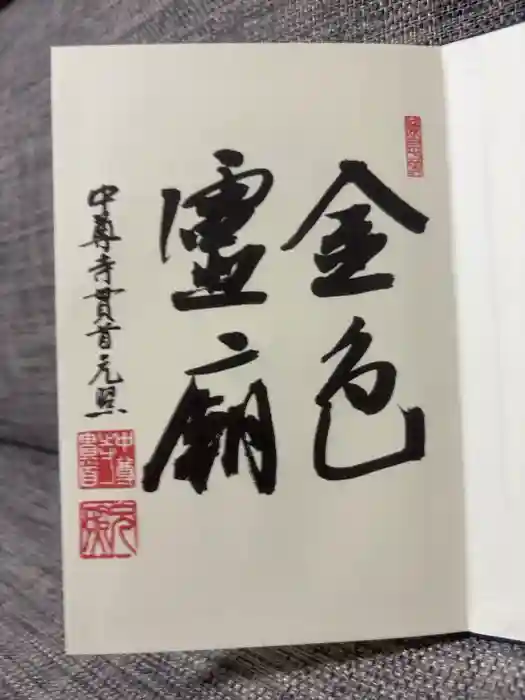 金色
霊廟
中尊寺貫首元照
中尊
寺
貫首